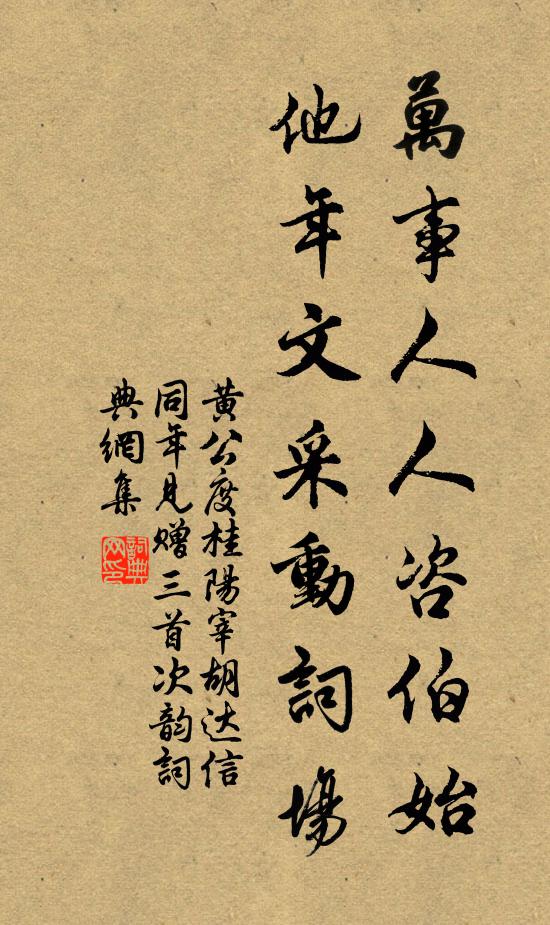 萬事人人咨伯始
他年文采動詞場
黄公度桂陽宰胡达信
同年見赠三首次韵詞
典網集
詞典网印